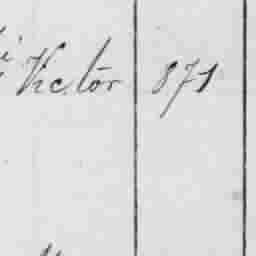 Victor 871